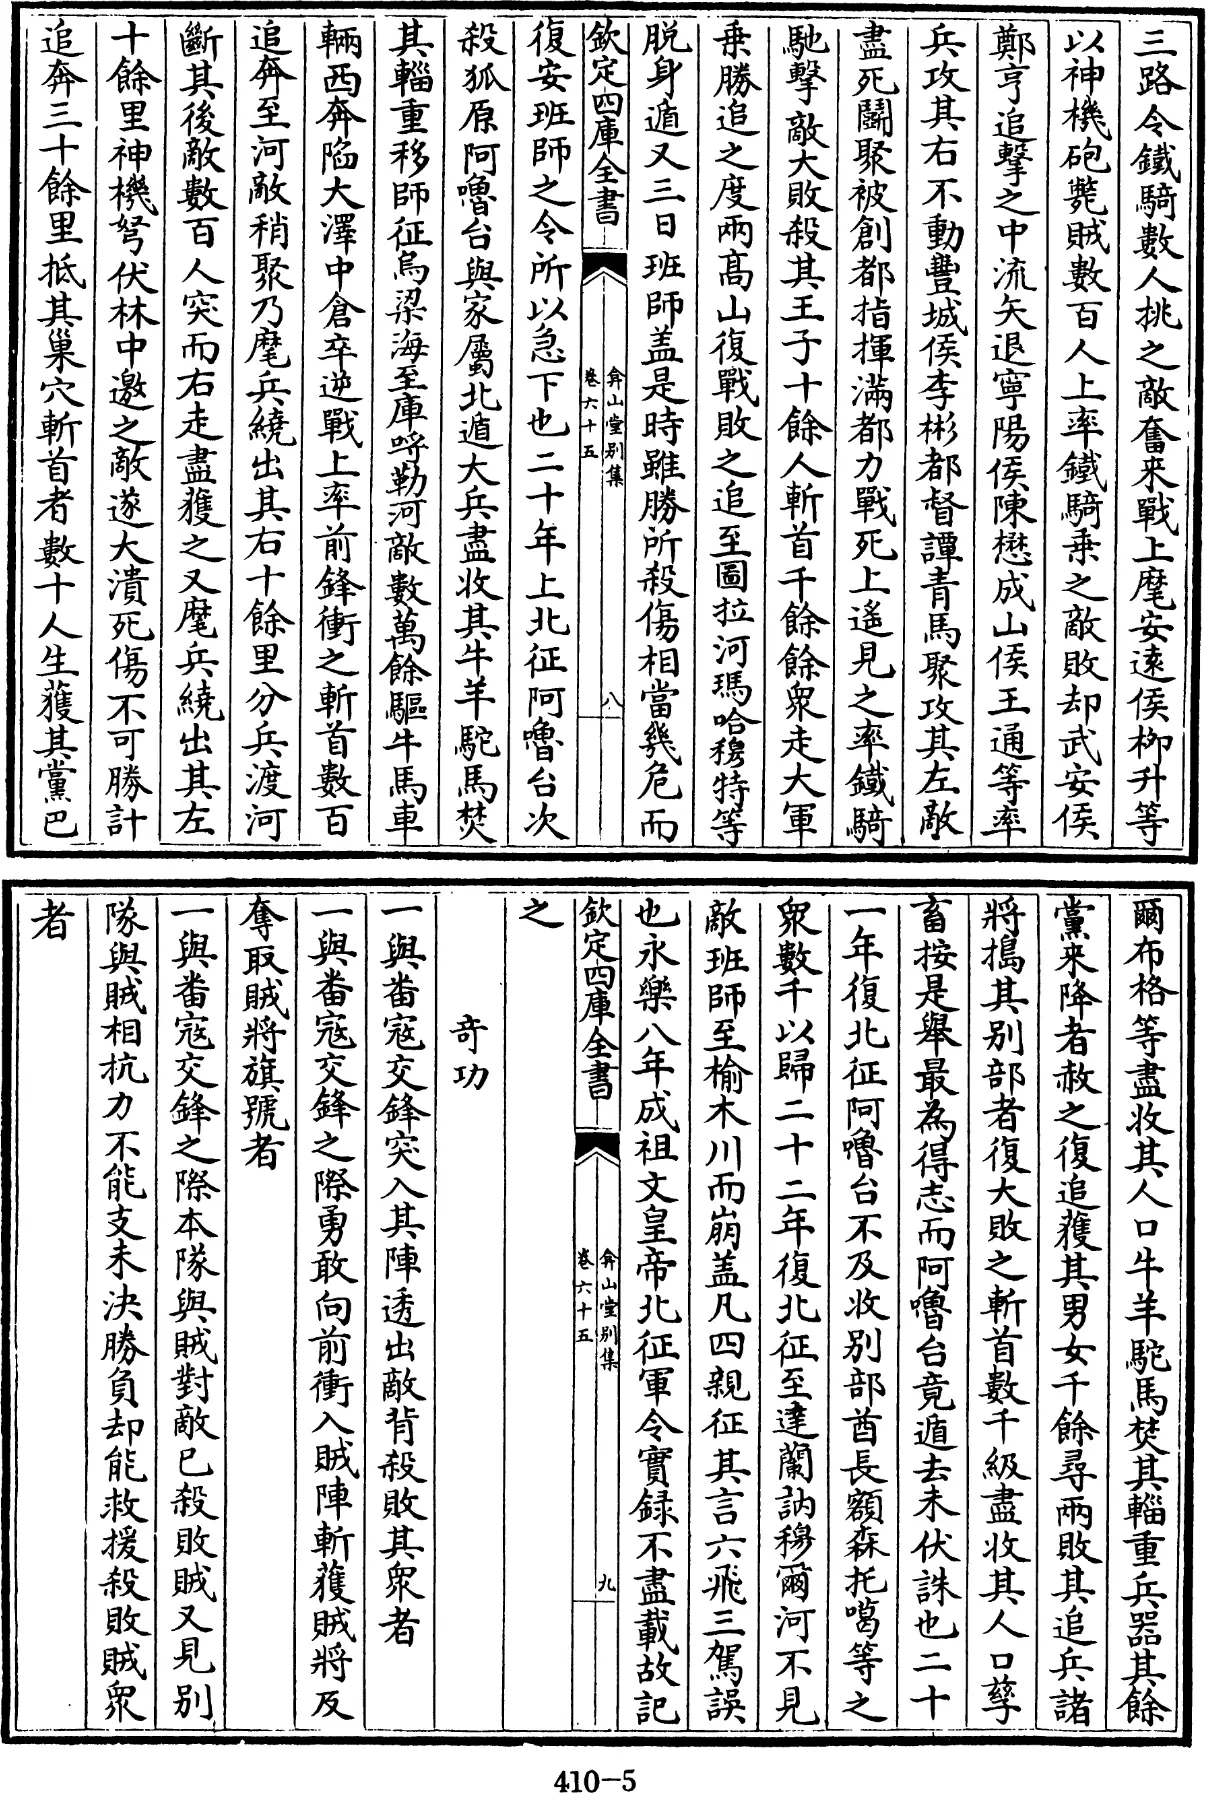 三路令鐵騎數人挑之敵奮来戰上麾安遠侯柳升等
以神機砲斃賊數百人上率鐵騎乗之敵敗却武安侯
鄭亨追擊之中流矢退寧陽侯陳懋成山侯王通等率
兵攻其右不動豐城侯李彬都督譚青馬聚攻其左敵
盡死鬭聚被創都指揮滿都力戰死上遙見之率鐵騎
馳擊敵大敗殺其王子十餘人斬首千餘餘衆走大軍
乗勝追之度兩高山復戰敗之追至圖拉河瑪哈穆特等
脱身遁又三日班師盖是時雖勝所殺傷相當幾危而
欽定四庫全書
弇山堂別集
卷六十五
八
復安班師之令所以急下也二十年上北征阿嚕台次
殺狐原阿嚕台與家屬北遁大兵盡收其牛羊駝馬焚
其輜重移師征烏梁海至庫呼勒河敵數萬餘驅牛馬車
輛西奔陷大澤中倉卒逆戰上率前鋒衝之斬首數百
追奔至河敵稍聚乃麾兵繞出其右十餘里分兵渡河
斷其後敵數百人突而右走盡獲之又麾兵繞出其左
十餘里神機弩伏林中邀之敵遂大潰死傷不可勝計
追奔三十餘里抵其巢穴斬首者數十人生獲其黨巴
爾布格等盡收其人口牛羊駝馬焚其輜重兵器其餘
黨来降者赦之復追獲其男女千餘尋兩敗其追兵諸
將搗其別部者復大敗之斬首數千級盡收其人口孳
畜按是舉最為得志而阿嚕台竟遁去未伏誅也二十
一年復北征阿嚕台不及收別部酋長額森托噶等之
衆數千以歸二十二年復北征至達蘭訥穆爾河不見
敵班師至榆木川而崩盖凡四親征其言六飛三駕誤
也永樂八年成祖文皇帝北征軍令實録不盡載故記
欽定四庫全書
弇山堂別集
卷六十五
九
之
奇功
一與畨寇交鋒突入其陣透出敵背殺敗其衆者
一與畨寇交鋒之際勇敢向前衝入賊陣斬獲賊將及
奪取賊將旗號者
一與畨寇交鋒之際本隊與賊對敵已殺敗賊又見別
隊與賊相抗力不能支未決勝負却能救援殺敗賊衆
者
410-5